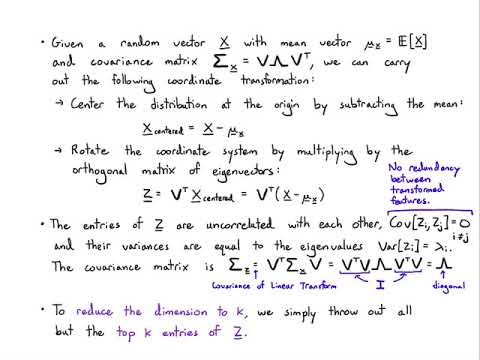 • Given a random vector X with mean vector μ_X = 𝔼[X]
and covariance matrix Σ_X = VΛVᵀ, we can carry
out the following coordinate transformation:
→ Center the distribution at the origin by subtracting the mean:
X_centered = X - μ_X
→ Rotate the coordinate system by multiplying by the
orthogonal matrix of eigenvectors:
Z = Vᵀ X_centered = Vᵀ(X - μ_X)
No redundancy
between
transformed
features.
• The entries of Z are uncorrelated with each other, Cov[Zᵢ, Zⱼ] = 0
i≠j
and their variances are equal to the eigenvalues Var[Zᵢ] = λᵢ.
The covariance matrix is Σ_Z = VᵀΣ_X V = VᵀVΛVᵀV = Λ
Covariance of Linear Transform I diagonal
• To reduce the dimension to k, we simply throw out all
but the top k entries of Z.